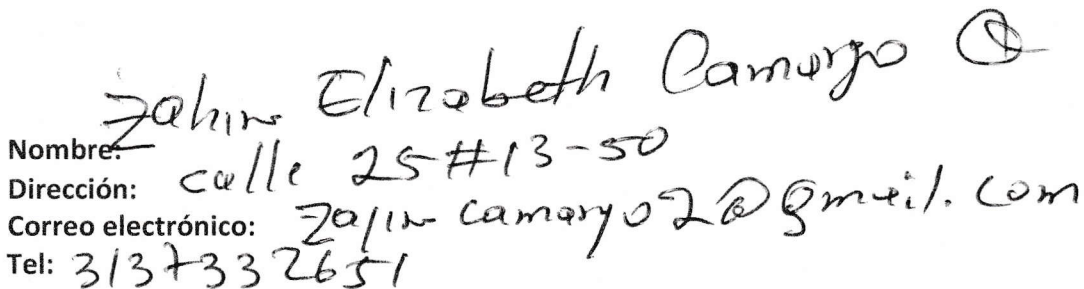 Nombre: Zahira Elizabeth Camargo Q
Dirección: calle 25 #13-50
Correo electrónico: camargo2@gmail.com
Tel: 3137332651